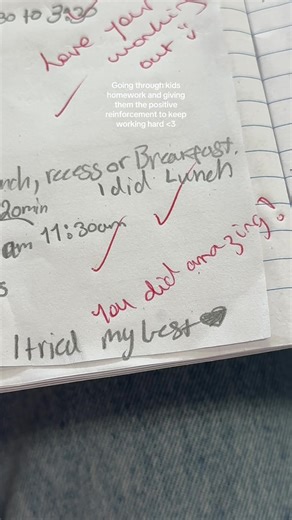 30 to 3:30
Love your
working
out
Going through kids
homework and giving
them the positive
reinforcement to keep
working hard <3
nch, recess or Breakfast.
I did Lunch
20min
am 11:30am
s
You did amazing!
I tried my best